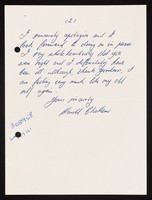 (2)
I sincerely apologise and I
look forward to doing so in person
I say wholeheartedly that you
were right and I definitely have
been ill although, thank goodness, I
am feeling very much like my old
self again.
Yours sincerely